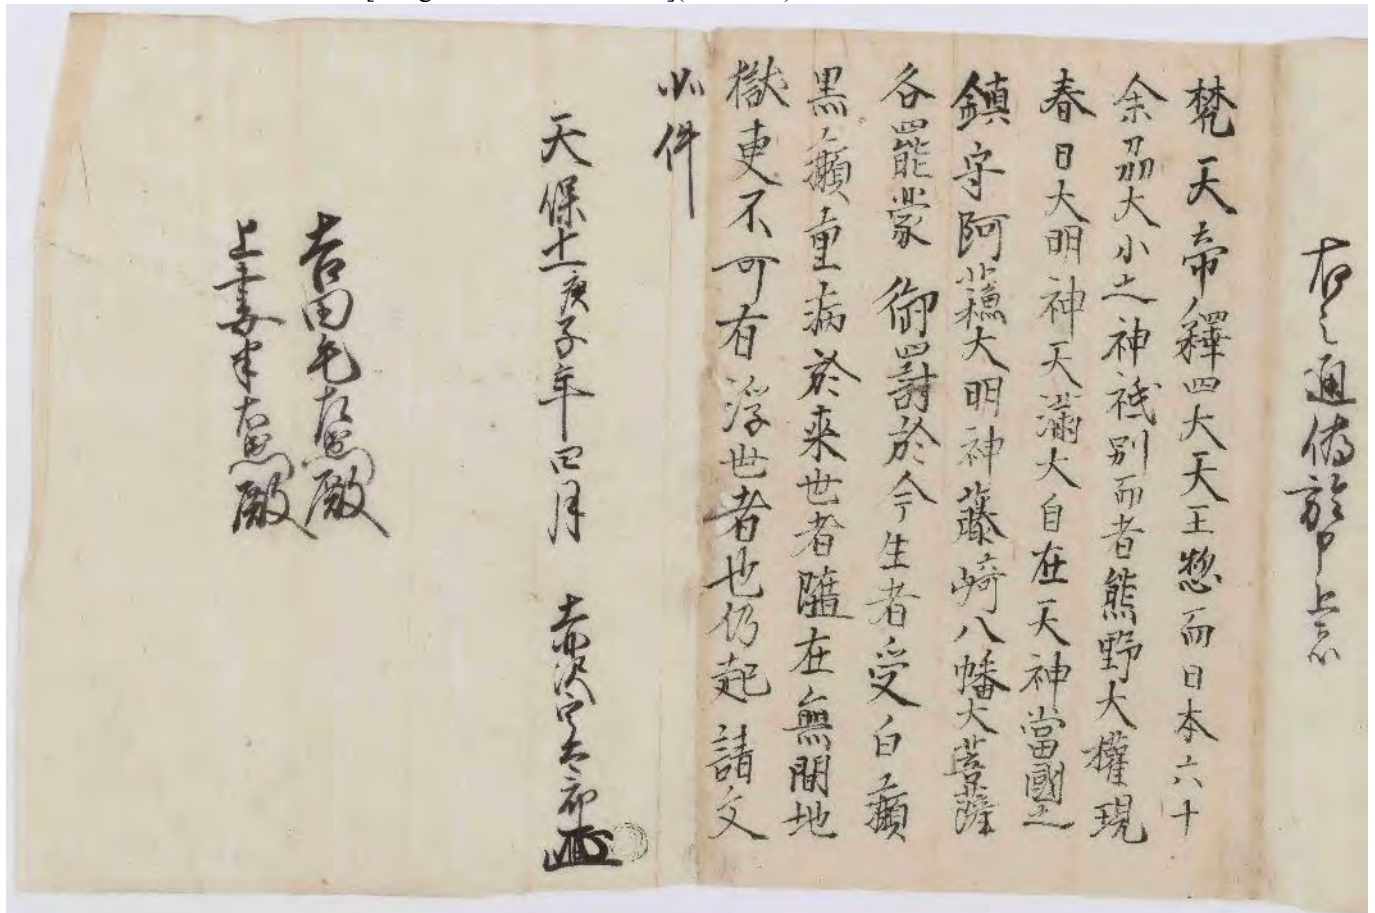 右之通偽於申上者
梵天帝釋四大天王惣而日本六十
余刕大小之神祇別而者熊野大權現
春日大明神天滿大自在天神當國之
鎮守阿蘇大明神藤崎八幡大菩薩
各罷蒙 御罰於今生者受白癩
黒癩重病於来世者墮在無間地
獄更不可有浮世者也仍起請文
如件
天保十一庚子年四月 赤沢
吉田 殿
上妻半右衛門殿